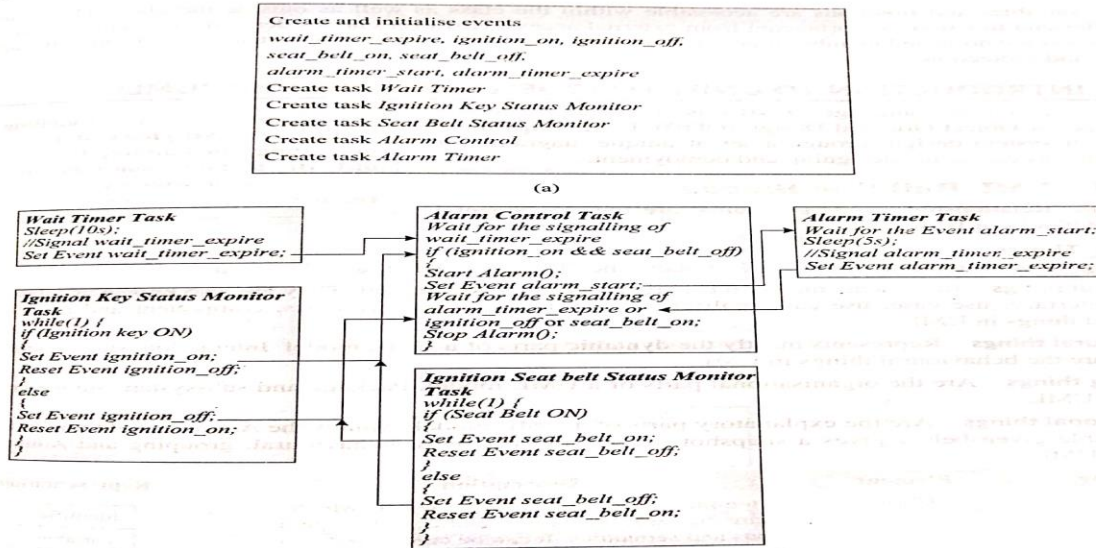 Create and initialise events
wait_timer_expire, ignition_on, ignition_off,
seat_belt_on, seat_belt_off,
alarm_timer_start, alarm_timer_expire
Create task Wait Timer
Create task Ignition Key Status Monitor
Create task Seat Belt Status Monitor
Create task Alarm Control
Create task Alarm Timer
(a)
Wait Timer Task
Sleep(10s);
//Signal wait_timer_expire
Set Event wait_timer_expire;
Ignition Key Status Monitor
Task
while(1) {
if (Ignition key ON)
{
Set Event ignition_on;
Reset Event ignition_off;
}
else
{
Set Event ignition_off;
Reset Event ignition_on;
}
}
Alarm Control Task
Wait for the signalling of
wait_timer_expire
if (ignition_on && seat_belt_off)
{
Start Alarm();
Set Event alarm_start;
Wait for the signalling of
alarm_timer_expire or
ignition_off or seat_belt_on;
Stop Alarm();
}
Alarm Timer Task
Wait for the Event alarm_start;
Sleep(5s);
//Signal alarm_timer_expire
Set Event alarm_timer_expire;
Ignition Seat belt Status Monitor
Task
while(1) {
if (Seat Belt ON)
{
Set Event seat_belt_on;
Reset Event seat_belt_off;
}
else
{
Set Event seat_belt_off;
Reset Event seat_belt_on;
}
}